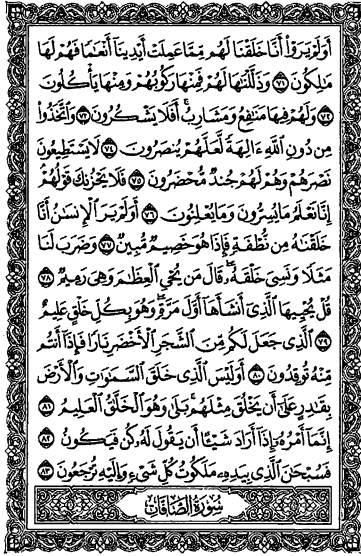 أَوَلَمْ يَرَوْا۟ أَنَّا خَلَقْنَا لَهُم مِّمَّا عَمِلَتْ أَيْدِينَآ أَنْعَـٰمًا فَهُمْ لَهَا
مَـٰلِكُونَ ٧١ وَذَلَّلْنَـٰهَا لَهُمْ فَمِنْهَا رَكُوبُهُمْ وَمِنْهَا يَأْكُلُونَ
٧٢ وَلَهُمْ فِيهَا مَنَـٰفِعُ وَمَشَارِبُ أَفَلَا يَشْكُرُونَ ٧٣ وَٱتَّخَذُوا۟
مِن دُونِ ٱللَّهِ ءَالِهَةً لَّعَلَّهُمْ يُنصَرُونَ ٧٤ لَا يَسْتَطِيعُونَ
نَصْرَهُمْ وَهُمْ لَهُمْ جُندٌ مُّحْضَرُونَ ٧٥ فَلَا يَحْزُنكَ قَوْلُهُمْ
إِنَّا نَعْلَمُ مَا يُسِرُّونَ وَمَا يُعْلِنُونَ ٧٦ أَوَلَمْ يَرَ ٱلْإِنسَـٰنُ أَنَّا
خَلَقْنَـٰهُ مِن نُّطْفَةٍ فَإِذَا هُوَ خَصِيمٌ مُّبِينٌ ٧٧ وَضَرَبَ لَنَا
مَثَلًا وَنَسِىَ خَلْقَهُۥ قَالَ مَن يُحْىِ ٱلْعِظَـٰمَ وَهِىَ رَمِيمٌ ٧٨
قُلْ يُحْيِيهَا ٱلَّذِىٓ أَنشَأَهَآ أَوَّلَ مَرَّةٍ وَهُوَ بِكُلِّ خَلْقٍ عَلِيمٌ
٧٩ ٱلَّذِى جَعَلَ لَكُم مِّنَ ٱلشَّجَرِ ٱلْأَخْضَرِ نَارًا فَإِذَآ أَنتُم
مِّنْهُ تُوقِدُونَ ٨٠ أَوَلَيْسَ ٱلَّذِى خَلَقَ ٱلسَّمَـٰوَٰتِ وَٱلْأَرْضَ
بِقَـٰدِرٍ عَلَىٰٓ أَن يَخْلُقَ مِثْلَهُم بَلَىٰ وَهُوَ ٱلْخَلَّـٰقُ ٱلْعَلِيمُ ٨١
إِنَّمَآ أَمْرُهُۥٓ إِذَآ أَرَادَ شَيْـًٔا أَن يَقُولَ لَهُۥ كُن فَيَكُونُ ٨٢
فَسُبْحَـٰنَ ٱلَّذِى بِيَدِهِۦ مَلَكُوتُ كُلِّ شَىْءٍ وَإِلَيْهِ تُرْجَعُونَ ٨٣
سُورَةُ الصَّافَّاتِ